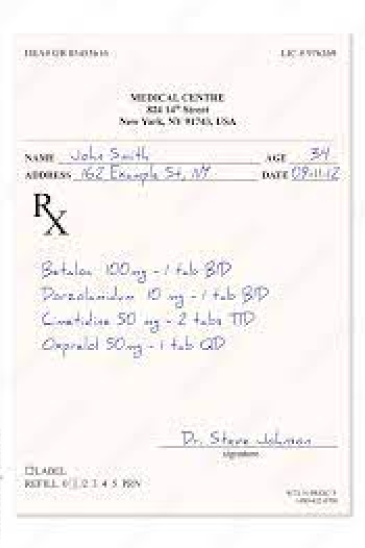 DEA# GB 05455616 LIC # 976269
MEDICAL CENTRE
824 14th Street
New York, NY 91743, USA
NAME John Smith AGE 34
ADDRESS 162 Example St, NY DATE 09-11-12
Rx
Betaloc 100mg - 1 tab BID
Dorzolamidum 10 mg - 1 tab BID
Cimetidine 50 mg - 2 tabs TID
Oxprelol 50mg - 1 tab QD
Dr. Steve Johnson
signature
LABEL
REFILL 0 1 2 3 4 5 PRN